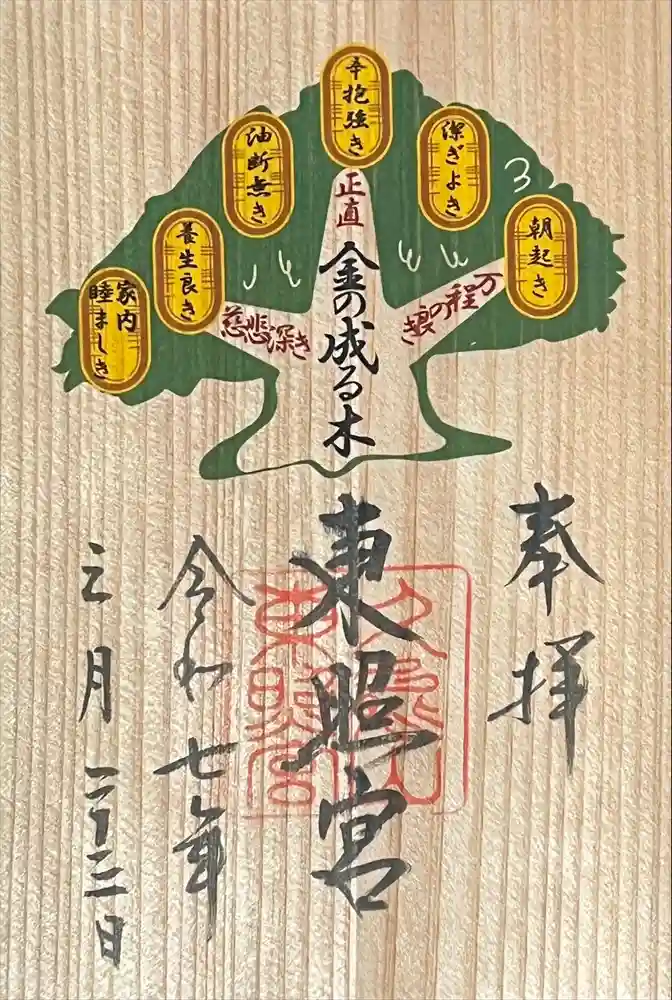 朝起き
潔ぎよき
辛抱強き
油断無き
養生良き
家内
睦ましき
正直
万程の良き
慈悲深き
金の成る木
奉拝
東照宮
久能山
東照宮
令和七年
三月二十二日